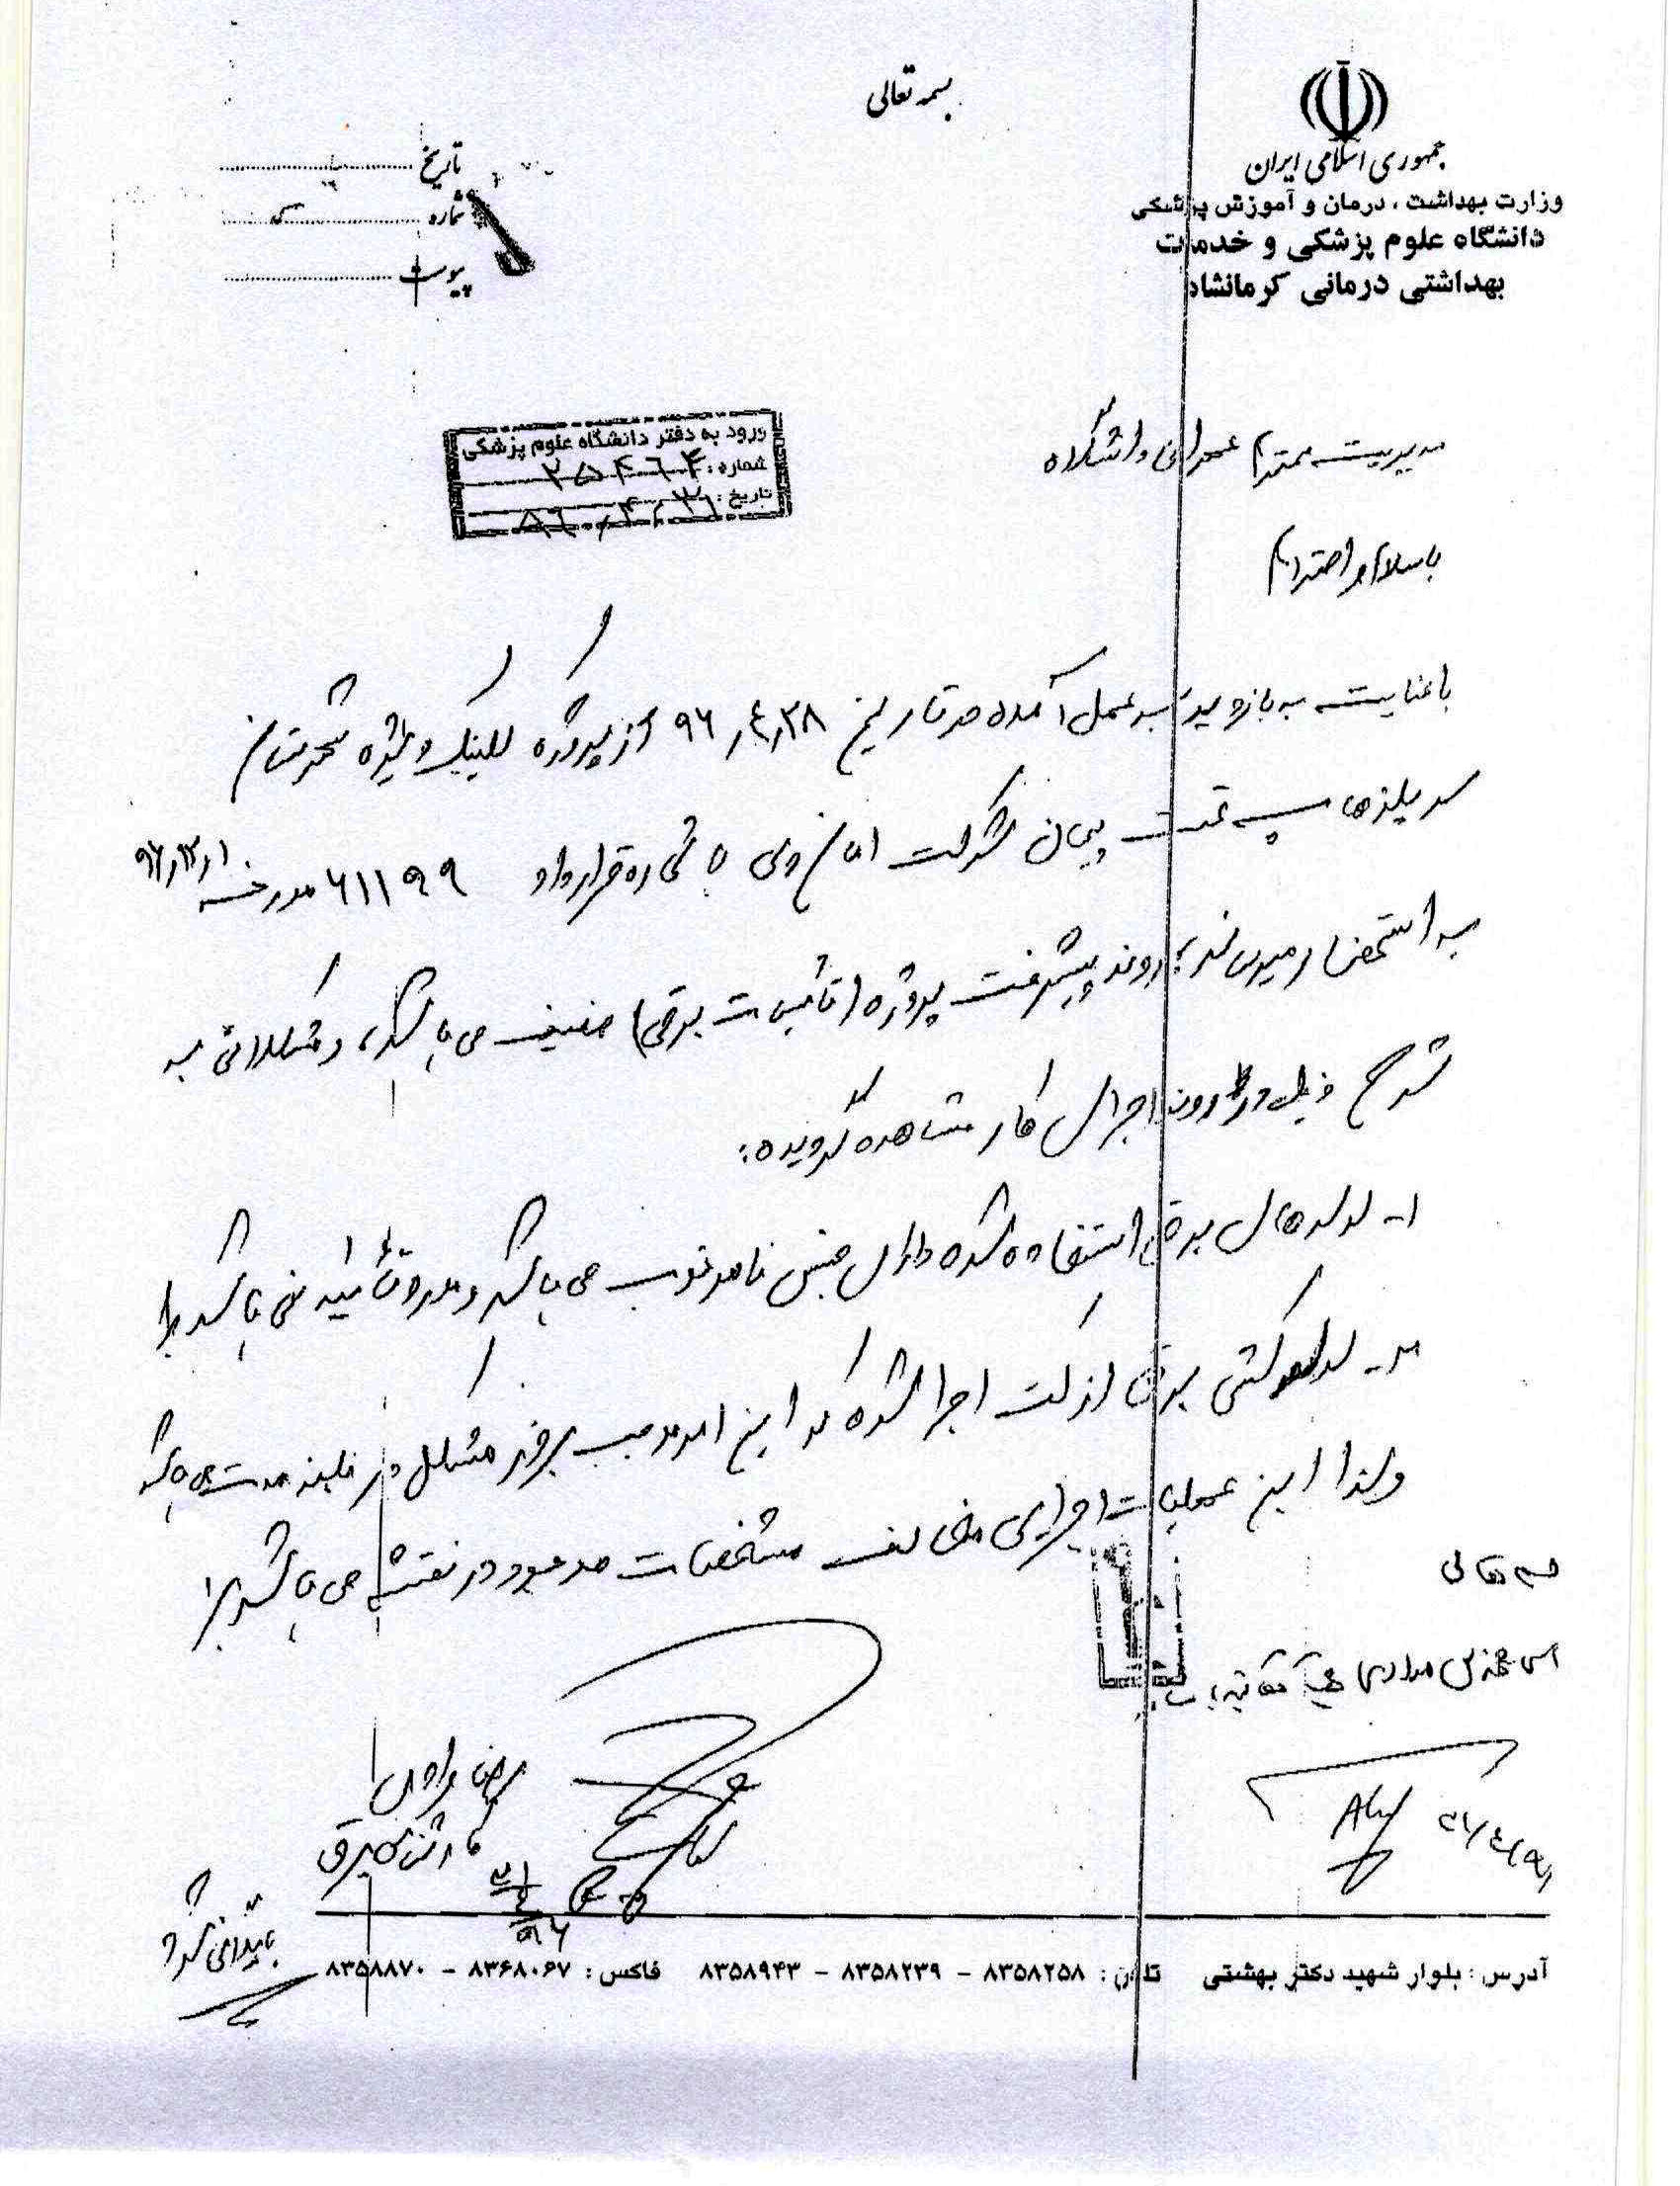 بسمه تعالی
جمهوری اسلامی ایران
وزارت بهداشت ، درمان و آموزش پزشکی
دانشگاه علوم پزشکی و خدمات
بهداشتی درمانی کرمانشاه
تاریخ
شماره
پیوست
ورود به دفتر دانشگاه علوم پزشکی
شماره: ۲۵۴۶۴
تاریخ:
مدیریت محترم عمرانی دانشگاه
با سلام و احترام
با عنایت به بازدید به عمل آمده در تاریخ ۹۶٫۴٫۲۸ از پروژه کلینیک ویژه شهرستان
سرپلذهاب تحت پیمان شرکت با شماره قرارداد ۶۱۱۹۹ مورخه
به استحضار میرساند؛ روند پیشرفت پروژه (تاسیسات برقی) ضعیف می باشد، و مشکلاتی به
شرح ذیل در روند اجرای کار مشاهده گردیده:
۱- لوله های برق استفاده شده دارای جنس نامرغوب می باشد و مورد تائید نمی باشد
۲- لوله کشی برق از کف اجرا شده که این امر موجب بروز مشکل در مدت می باشد
ولذا این عملیات اجرایی مخالف مشخصات موجود در نقشه می باشد
بسمه تعالی
رضا مرادی
کارشناس برق
۳۱/۴/۹۶
آدرس : بلوار شهید دکتر بهشتی تلفن : ۸۳۵۸۲۵۸ - ۸۳۵۸۲۳۹ - ۸۳۵۸۹۴۳ فاکس : ۸۳۶۸۰۶۷ - ۸۳۵۸۸۷۰